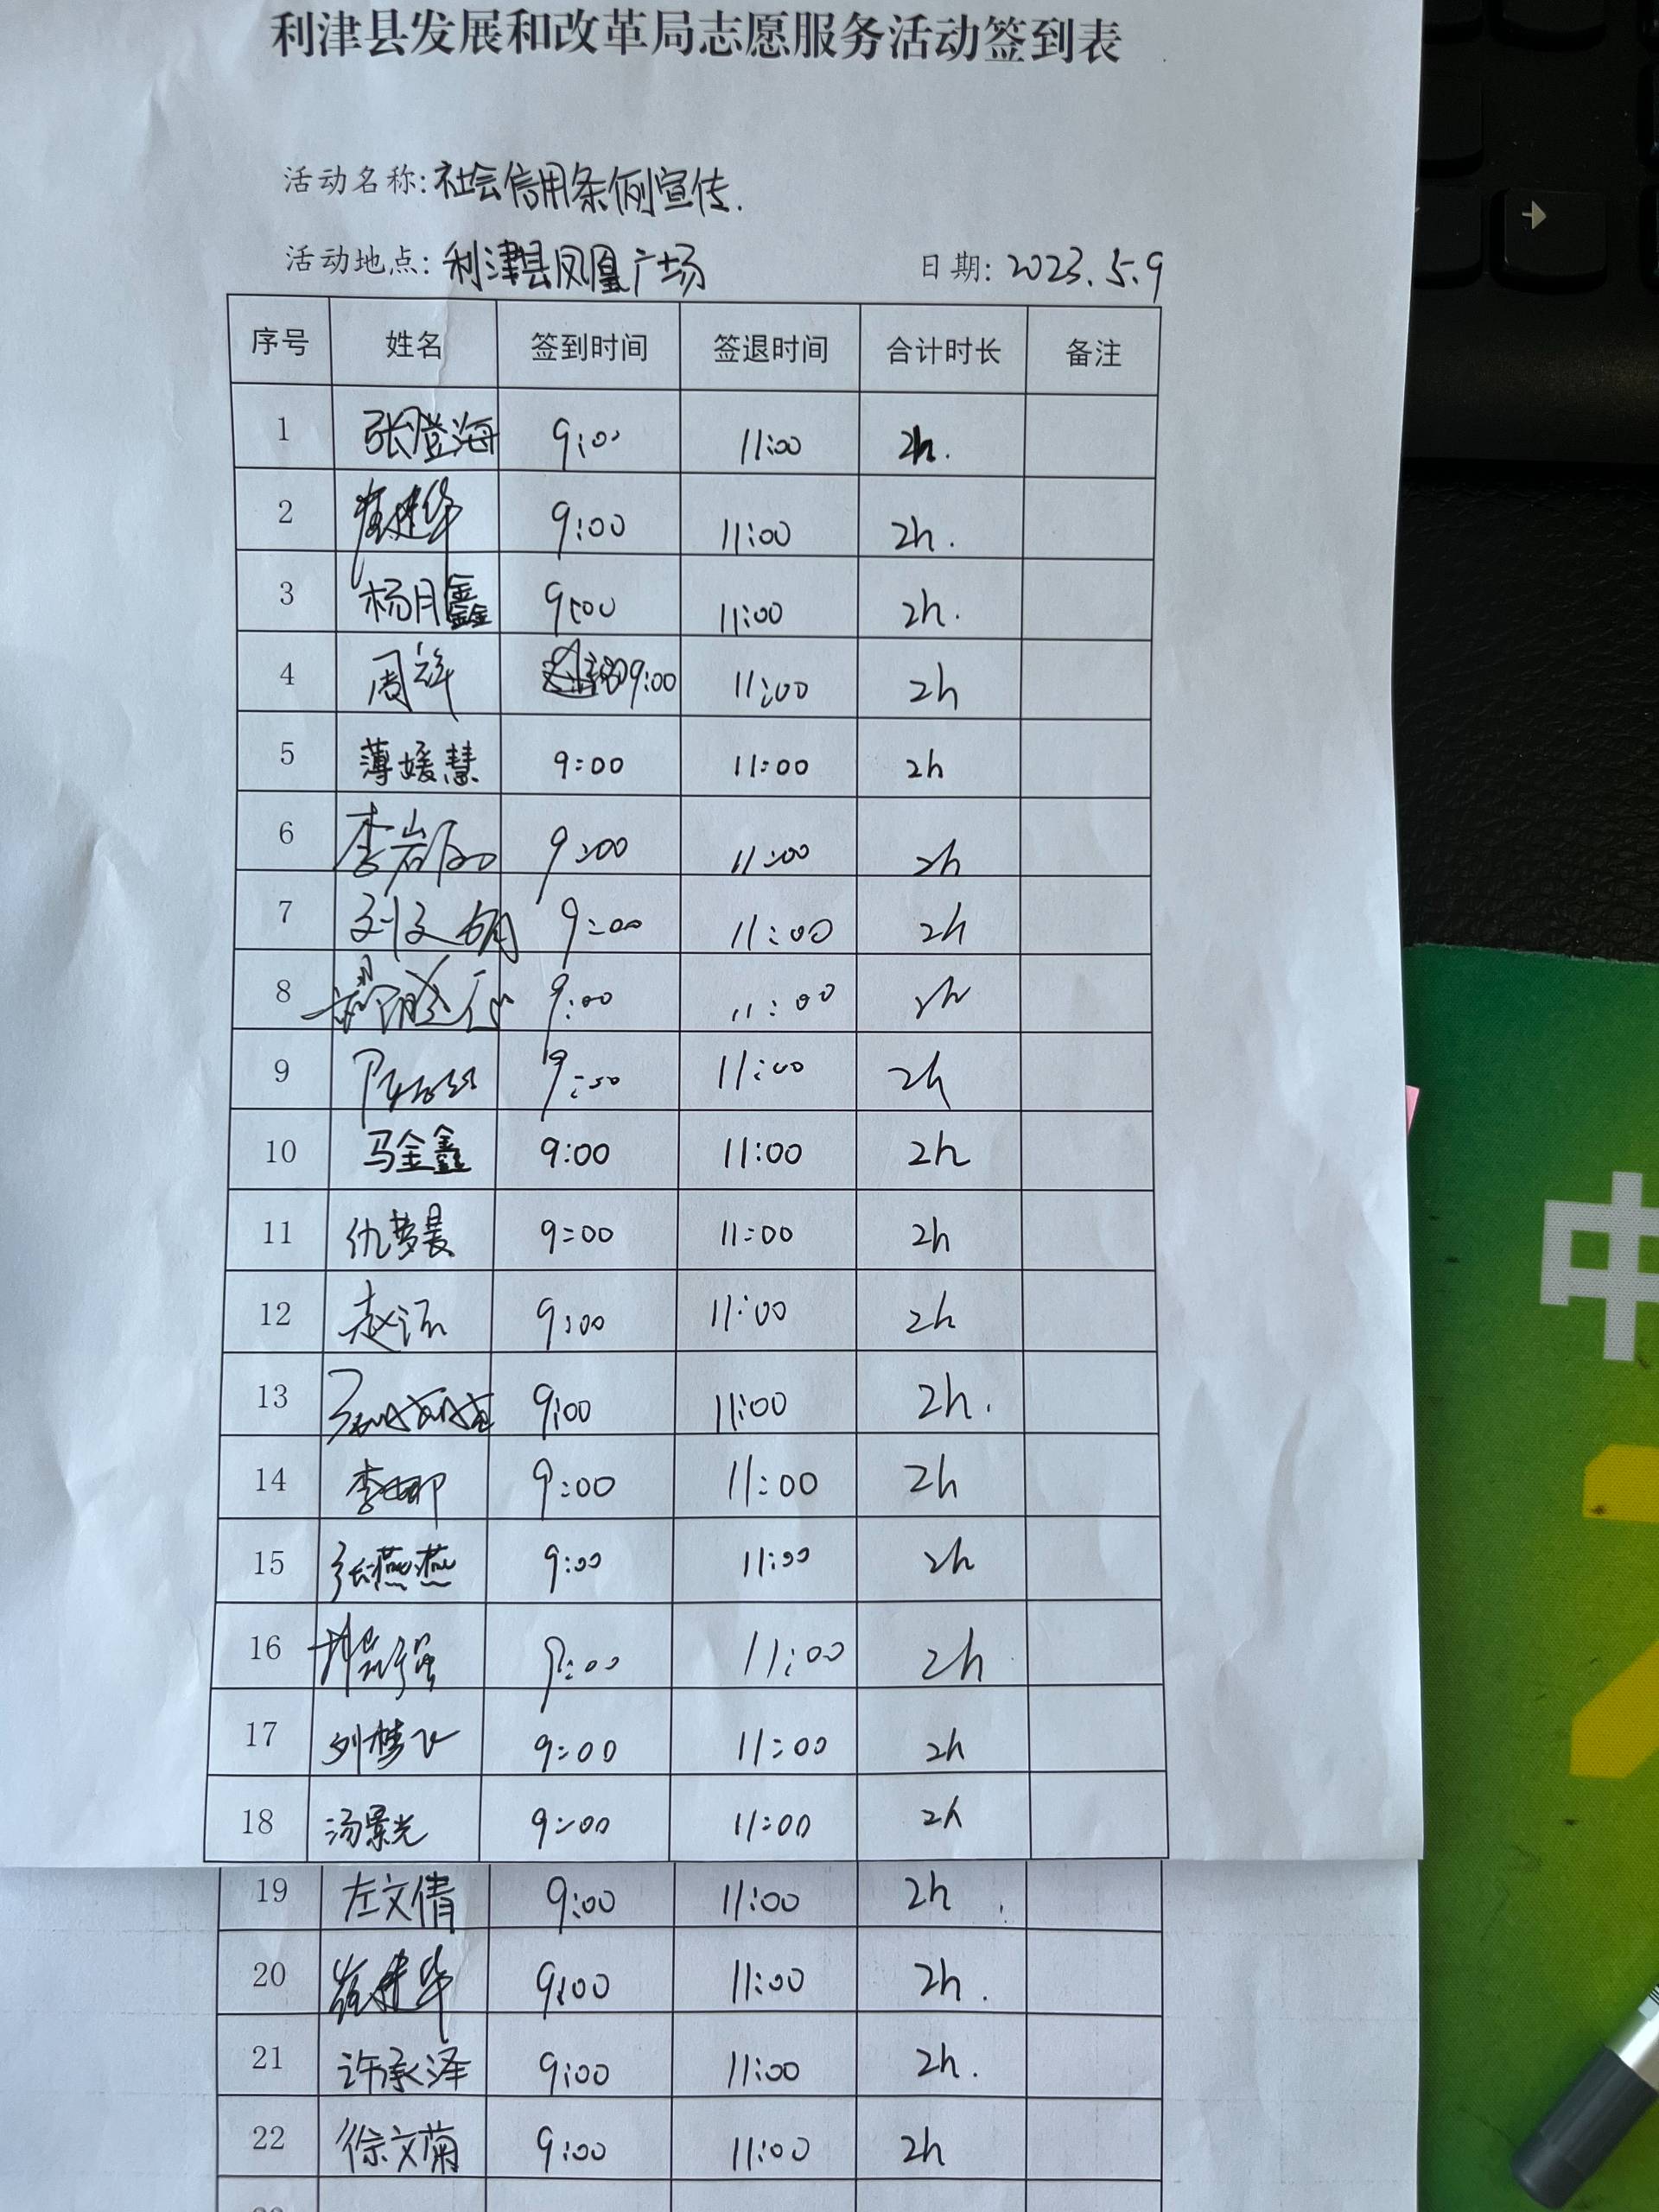 利津县发展和改革局志愿服务活动签到表
活动名称:社会信用条例宣传.
活动地点:利津县凤凰广场 日期:2023.5.9
序号 姓名 签到时间 签退时间 合计时长 备注
1 张澄海 9:00 11:00 2h.
2 崔建华 9:00 11:00 2h.
3 杨月鑫 9:00 11:00 2h.
4 周祥 9:00 11:00 2h
5 薄媛慧 9:00 11:00 2h
6 李岩 9:00 11:00 2h
7 刘文明 9:00 11:00 2h
8 9:00 11:00 2h
9 9:00 11:00 2h
10 马金鑫 9:00 11:00 2h
11 仇梦晨 9:00 11:00 2h
12 赵 9:00 11:00 2h
13 9:00 11:00 2h.
14 李娜 9:00 11:00 2h
15 张燕燕 9:00 11:00 2h
16 9:00 11:00 2h
17 刘梦飞 9:00 11:00 2h
18 汤景光 9:00 11:00 2h
19 左文倩 9:00 11:00 2h
20 崔建华 9:00 11:00 2h.
21 许承泽 9:00 11:00 2h.
22 徐文菊 9:00 11:00 2h
中